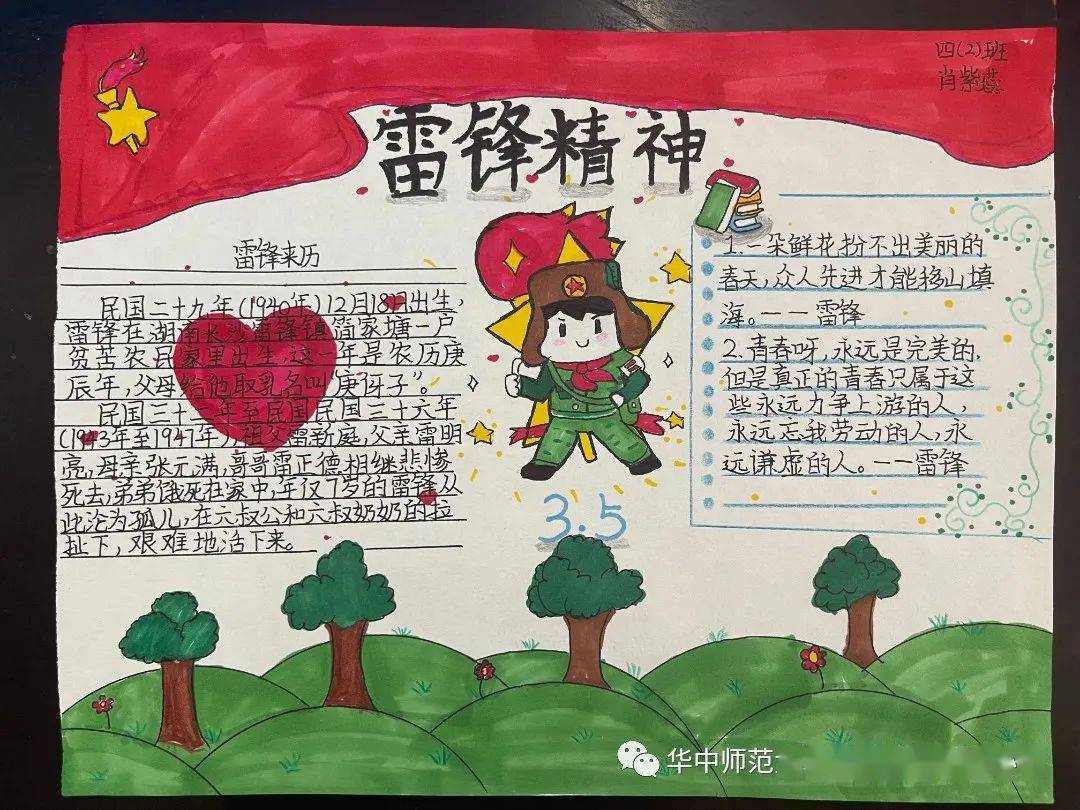 四(2)班
肖紫蕊
雷锋精神
雷锋来历
民国二十九年(1940年)12月18日出生,
雷锋在湖南长沙雷锋镇简家塘一户
贫苦农民家里出生,这一年是农历庚
辰年,父母给他取乳名叫“庚伢子”。
民国三十二年至民国民国三十六年
(1943年至1947年),祖父雷新庭,父亲雷明
亮,母亲张元满,哥哥雷正德相继悲惨
死去,弟弟饿死在家中,年仅7岁的雷锋从
此沦为孤儿,在六叔公和六叔奶奶的拉
扯下,艰难地活下来。
3.5
1.一朵鲜花扮不出美丽的
春天,众人先进才能移山填
海。——雷锋
2.青春呀,永远是完美的,
但是真正的青春只属于这
些永远力争上游的人,
永远忘我劳动的人,永
远谦虚的人。——雷锋
华中师范